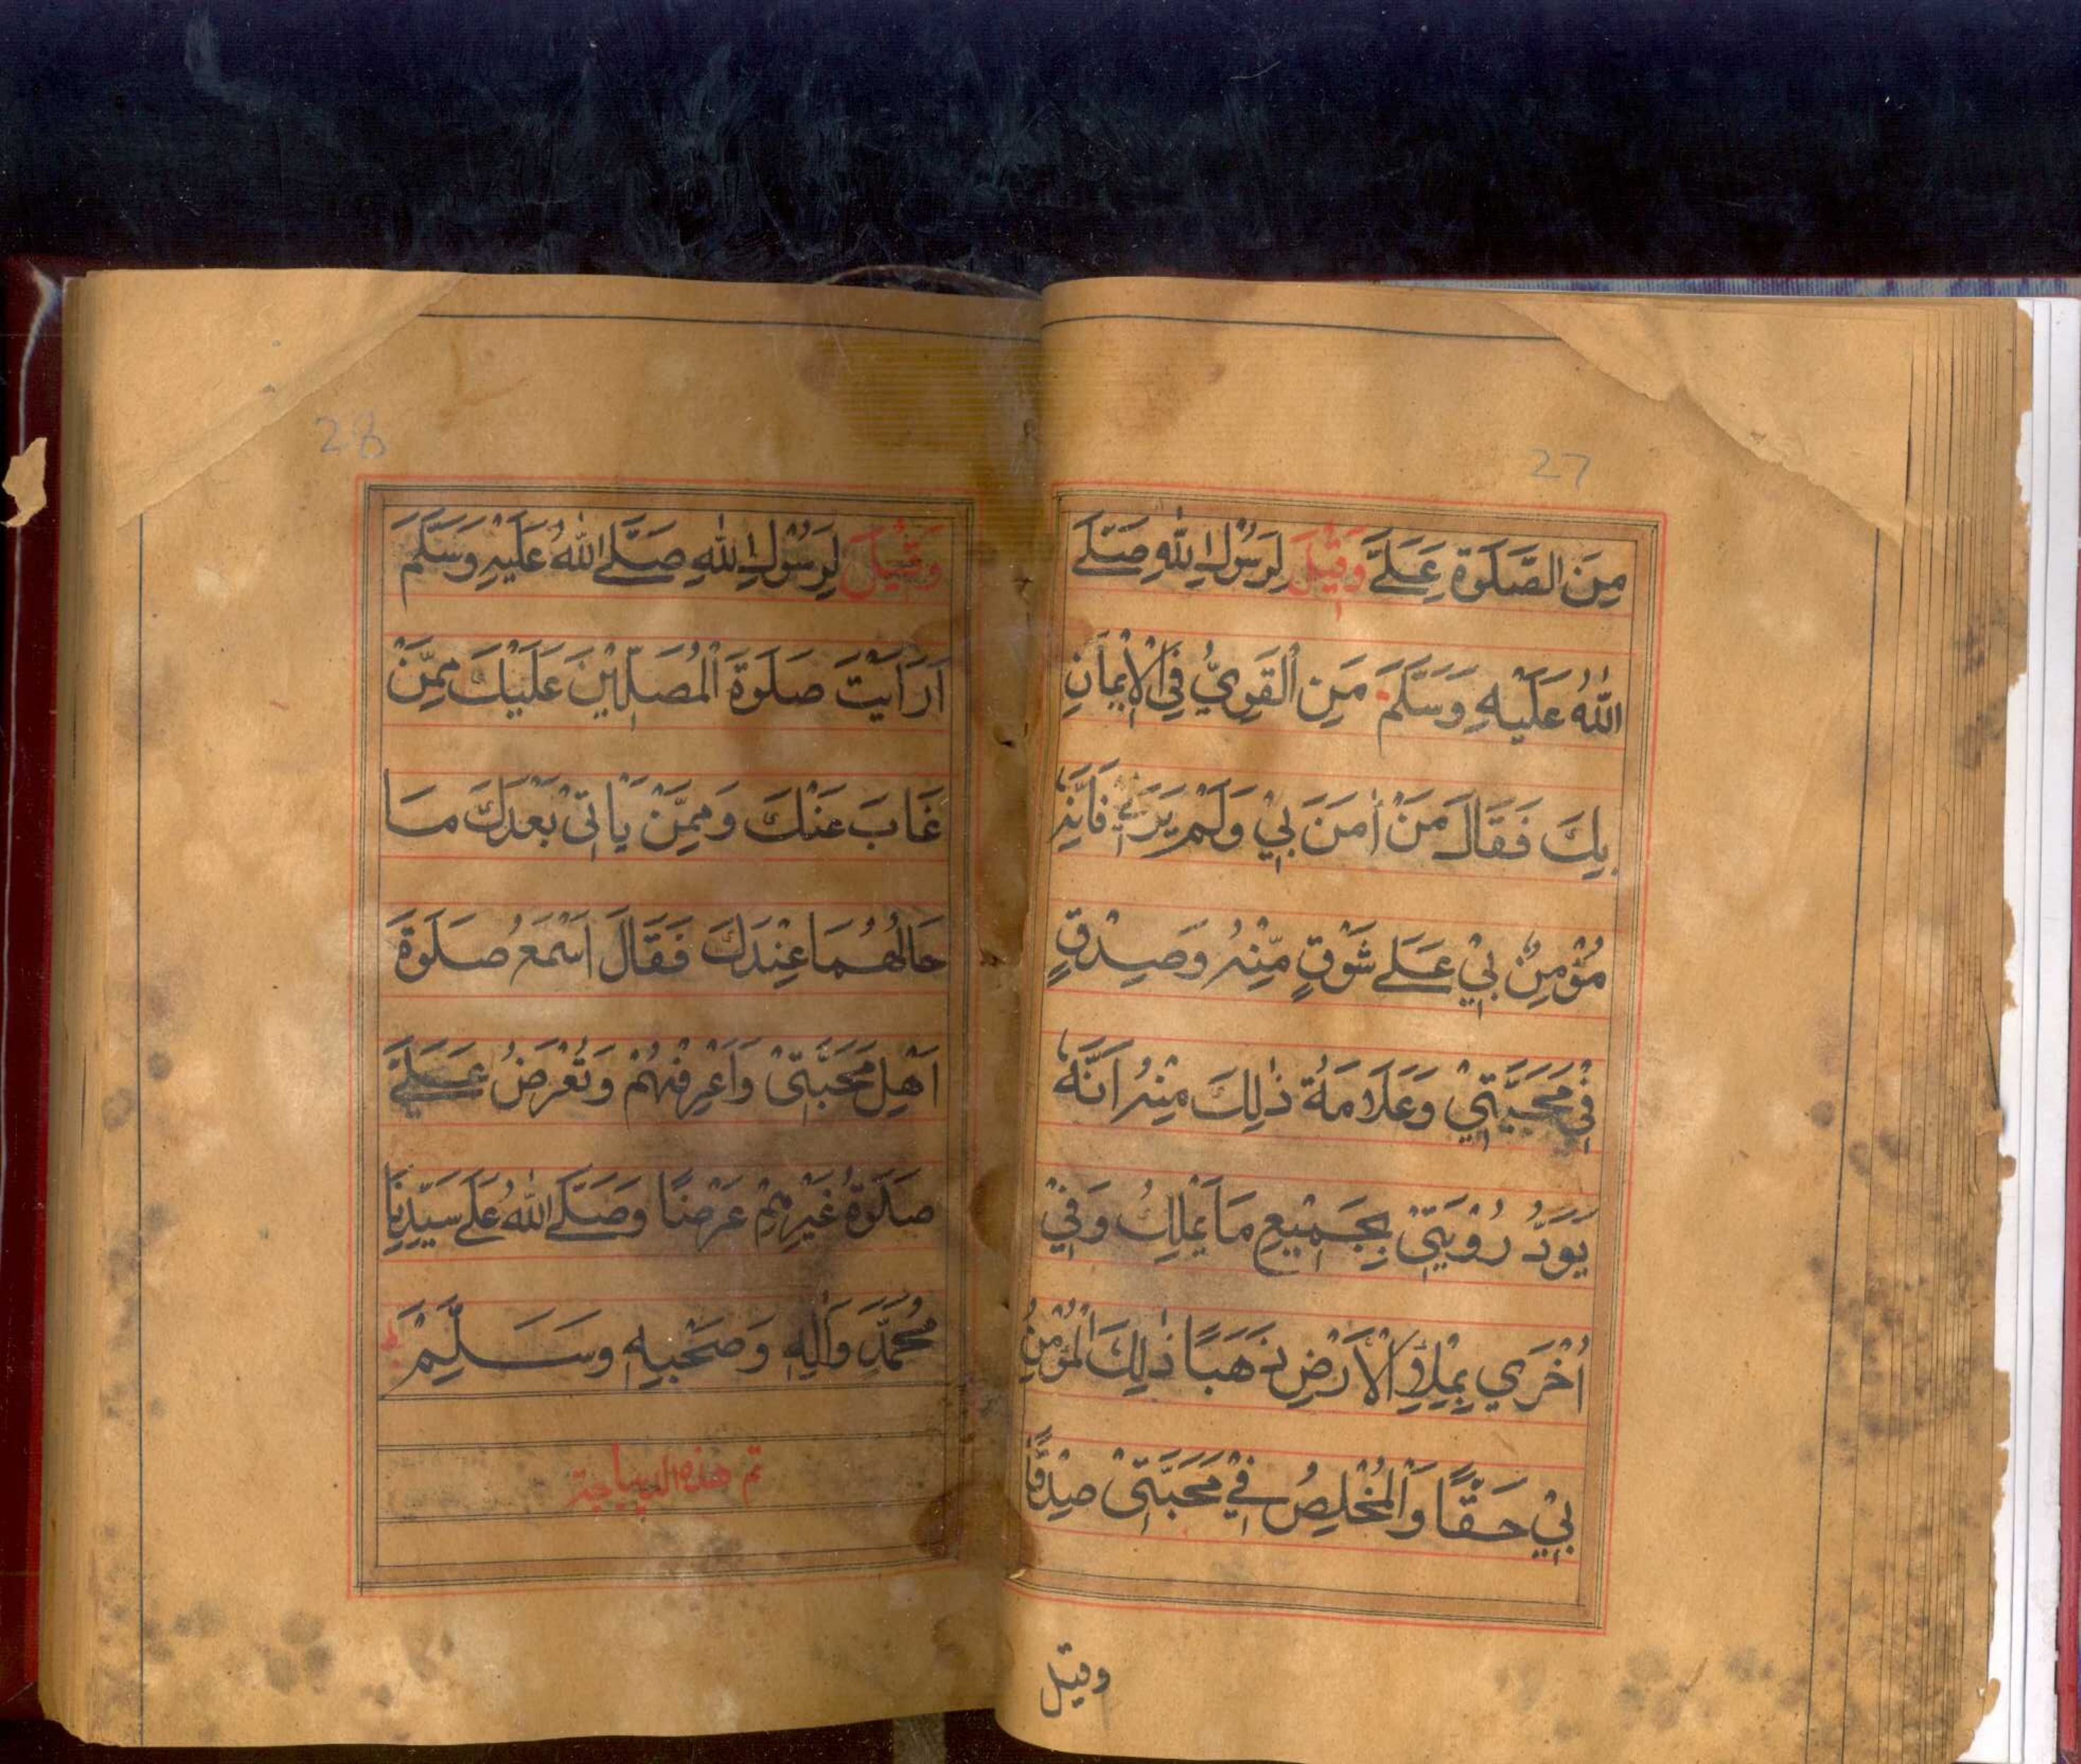 27
مِنَ الصَّلَوةِ عَلَيَّ وَقِيْلَ لِرَسُوْلِ اللهِ صَلَّے
اللهُ عَلَيْهِ وَسَلَّمَ مَنِ الْقَوِيُّ فِي الْاِيْمَانِ
بِكَ فَقَالَ مَنْ اٰمَنَ بِيْ وَلَمْ يَرَنِيْ فَاِنَّهٗ
مُؤْمِنٌ بِيْ عَلٰے شَوْقٍ مِّنْهُ وَصِدْقٍ
فِيْ مَحَبَّتِيْ وَعَلَامَةُ ذٰلِكَ مِنْهُ اَنَّهٗ
يَوَدُّ رُؤْيَتِيْ بِجَمِيْعِ مَا يَمْلِكُ وَفِيْ
اُخْرٰي بِمِلْاِ الْاَرْضِ ذَهَبًا ذٰلِكَ الْمُؤْمِنُ
بِيْ حَقًّا وَالْمُخْلِصُ فِيْ مَحَبَّتِيْ صِدْقًا
وقيل
28
وَقِيْلَ لِرَسُوْلِ اللهِ صَلَّے اللهُ عَلَيْهِ وَسَلَّمَ
اَرَاَيْتَ صَلٰوةَ الْمُصَلِّيْنَ عَلَيْكَ مِمَّنْ
غَابَ عَنْكَ وَمِمَّنْ يَّاْتِيْ بَعْدَكَ مَا
حَالُهُمَا عِنْدَكَ فَقَالَ اَسْمَعُ صَلٰوةَ
اَهْلِ مَحَبَّتِيْ وَاَعْرِفُهُمْ وَتُعْرَضُ عَلَيَّ
صَلٰوةُ غَيْرِهِمْ عَرْضًا وَصَلَّے اللهُ عَلٰے سَيِّدِنَا
مُحَمَّدٍ وَّاٰلِهٖ وَصَحْبِهٖ وَسَلِّمْ ط
تم هذه الديباجة